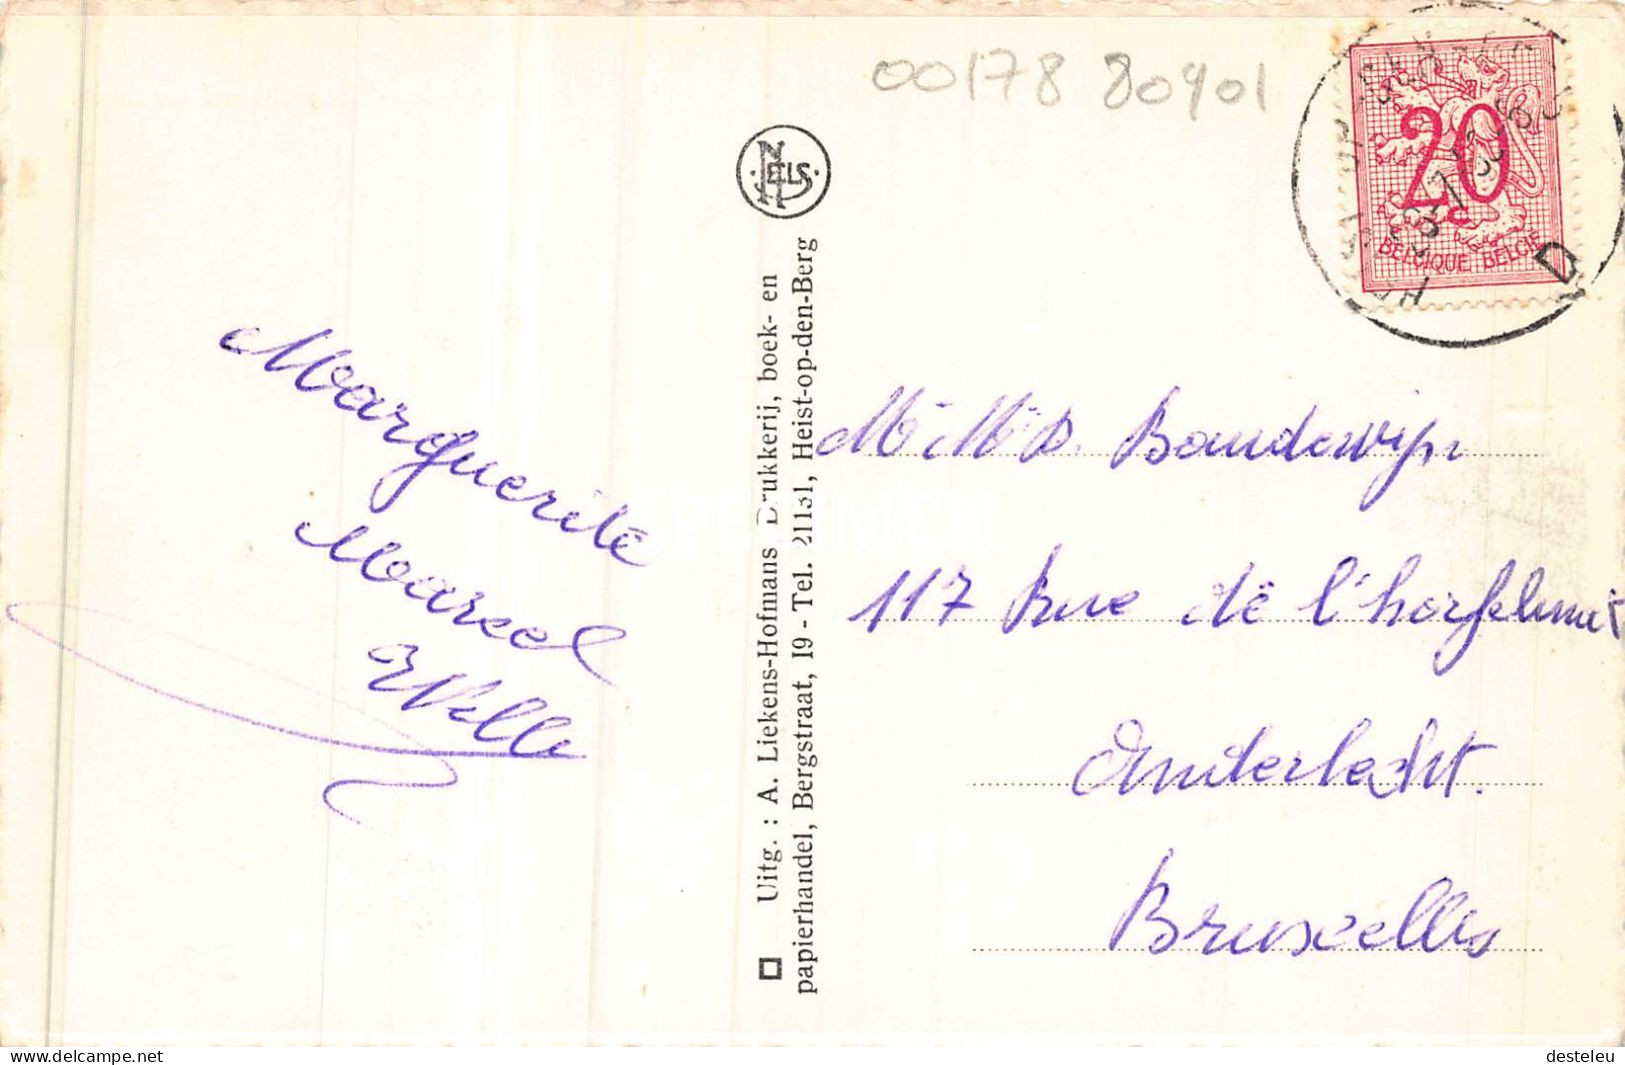 00178 80901
NELS
20
BELGIQUE BELGIE
D
Marguerite
Marcel
Willy
Uitg. : A. Liekens-Hofmans Drukkerij, boek- en
papierhandel, Bergstraat, 19 - Tel. 21131, Heist-op-den-Berg
Boudewijn
117 Rue de l'horfelinat
Anderlecht.
Bruxelles
PC site : delcampe.net
desteleu